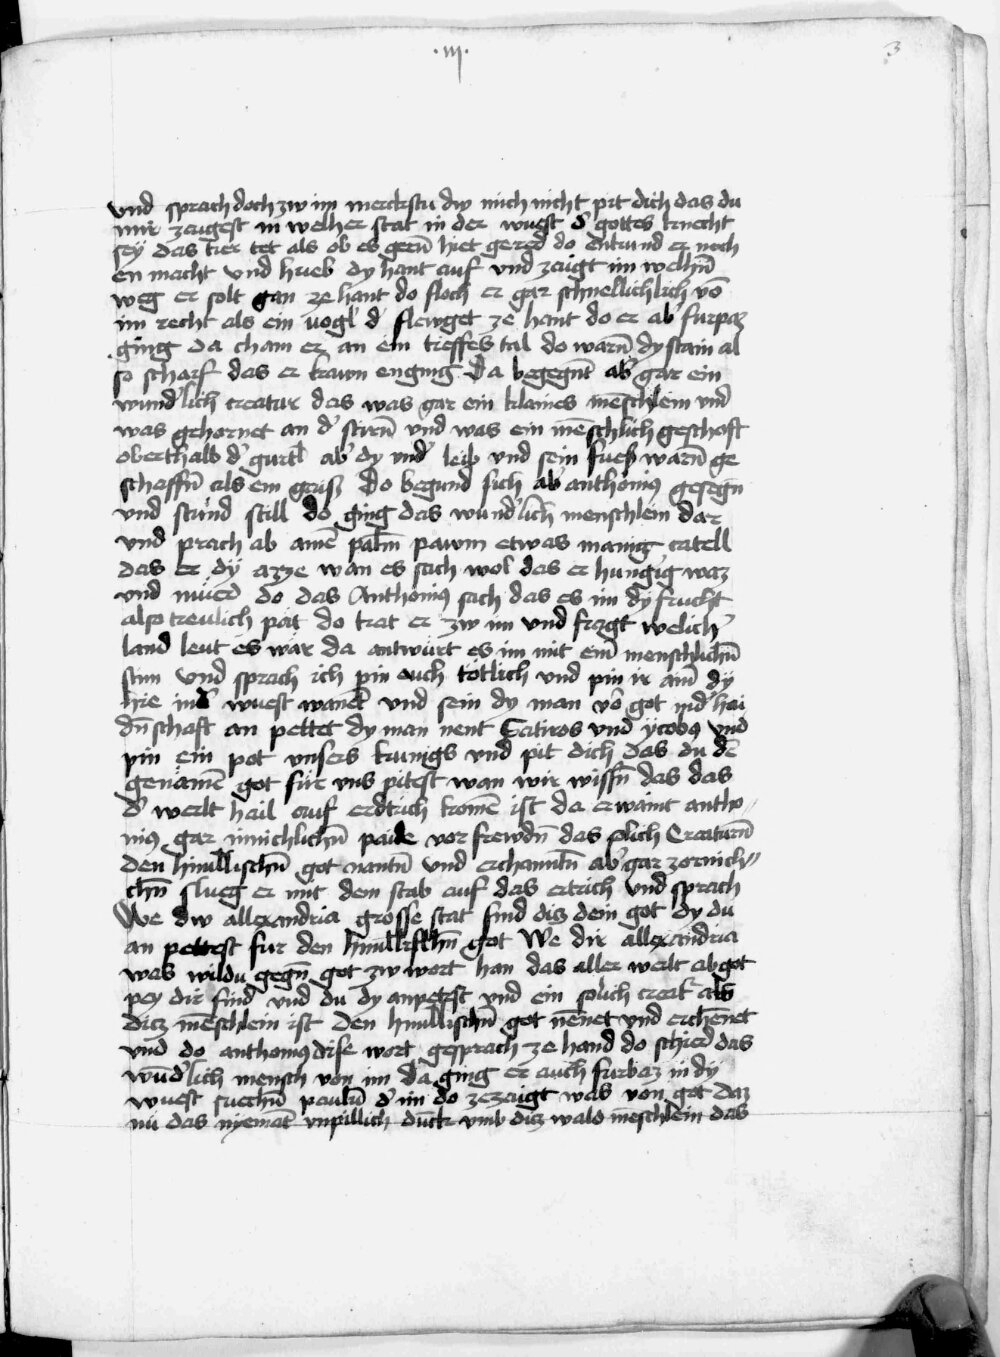 ·iij·
3
vnd sprach doch zw im merckstu dw mich nicht pit dich das du
mir zaigest in welher stat in der wüst d' gottes knecht
sey das tier tet als ob es gern̄ hiet gered do entrund er noch
en macht vnd hueb dy hant auf vnd zaigt im welhn̄
weg er solt gan ze hant do floch er gar schnellichlich vō
im recht als ein vogl d' flewget ze hant do er ab' furpaz
ging da cham er an ein tieffes tal do warn̄ dy stain al
so scharf das er kawm enging Da begegnt ab' gar ein
wund'lich creatur das was gar ein klaines meschlein vnd
was gehornet an d' stirn̄ vnd was ein mēschlich geschaft
oberthalb d' gurtl ab' dy vnd' leib vnd sein fuess warn̄ ge
schaffn̄ als ein geiss Do begund sich ab' anthonius gesegn
vnd stuend still do ging das wund'lich menschlein dar
vnd prach ab ainē palm̄ pawm etwas manig tatell
das er dy azze wan es sach wol das er hungig waz
vnd müed do das Anthonius sach das es im dy frucht
also treulich pat do trat er zw im vnd fragt welich
land leut es wär da antwurt es im mit eim menschlichn̄
stim vnd sprach ich pin auch tötlich vnd pin ir ainē dy
hie in d' wuest wanēt vnd sein dy man vō got in d' hai
dn̄schaft an pettet dy man nent Satiros vnd ycobus vnd
pin ein pot vnsers kunigs vnd pit dich das du dē
genämē got für vns pitest wan wir wissn̄ das das
d' werlt hail auf erdtrich komē ist da erwaint antho
nius gar innichlichn̄ paide vor frewdn̄ das solich Creaturn̄
den himlischn̄ got nantn̄ vnd erchanntn̄ ab' gar zornich
chn̄ slueg er mit dem stab auf das ertrich vnd sprach
We dw allexandria grosse stat sind ditz dein got dy du
an pettest fur den himlischn̄ got We dir allexandria
was wildu gegn̄ got zw wort han das aller werlt abgot
pey dir sind vnd du dy anpetest vnd ein solich creatur als
ditz mēschlein ist den himlischn̄ got nēnet vnd erchēnet
vnd do anthonius dise wort gesprach ze hand do schied das
wūd'lich mensch von im da ging er auch furbaz in dy
wuest suechn̄ paulū d' im do zezaigt was von got Daz
nu das nyemāt vnpillich dūck vmb ditz wald meschlein das